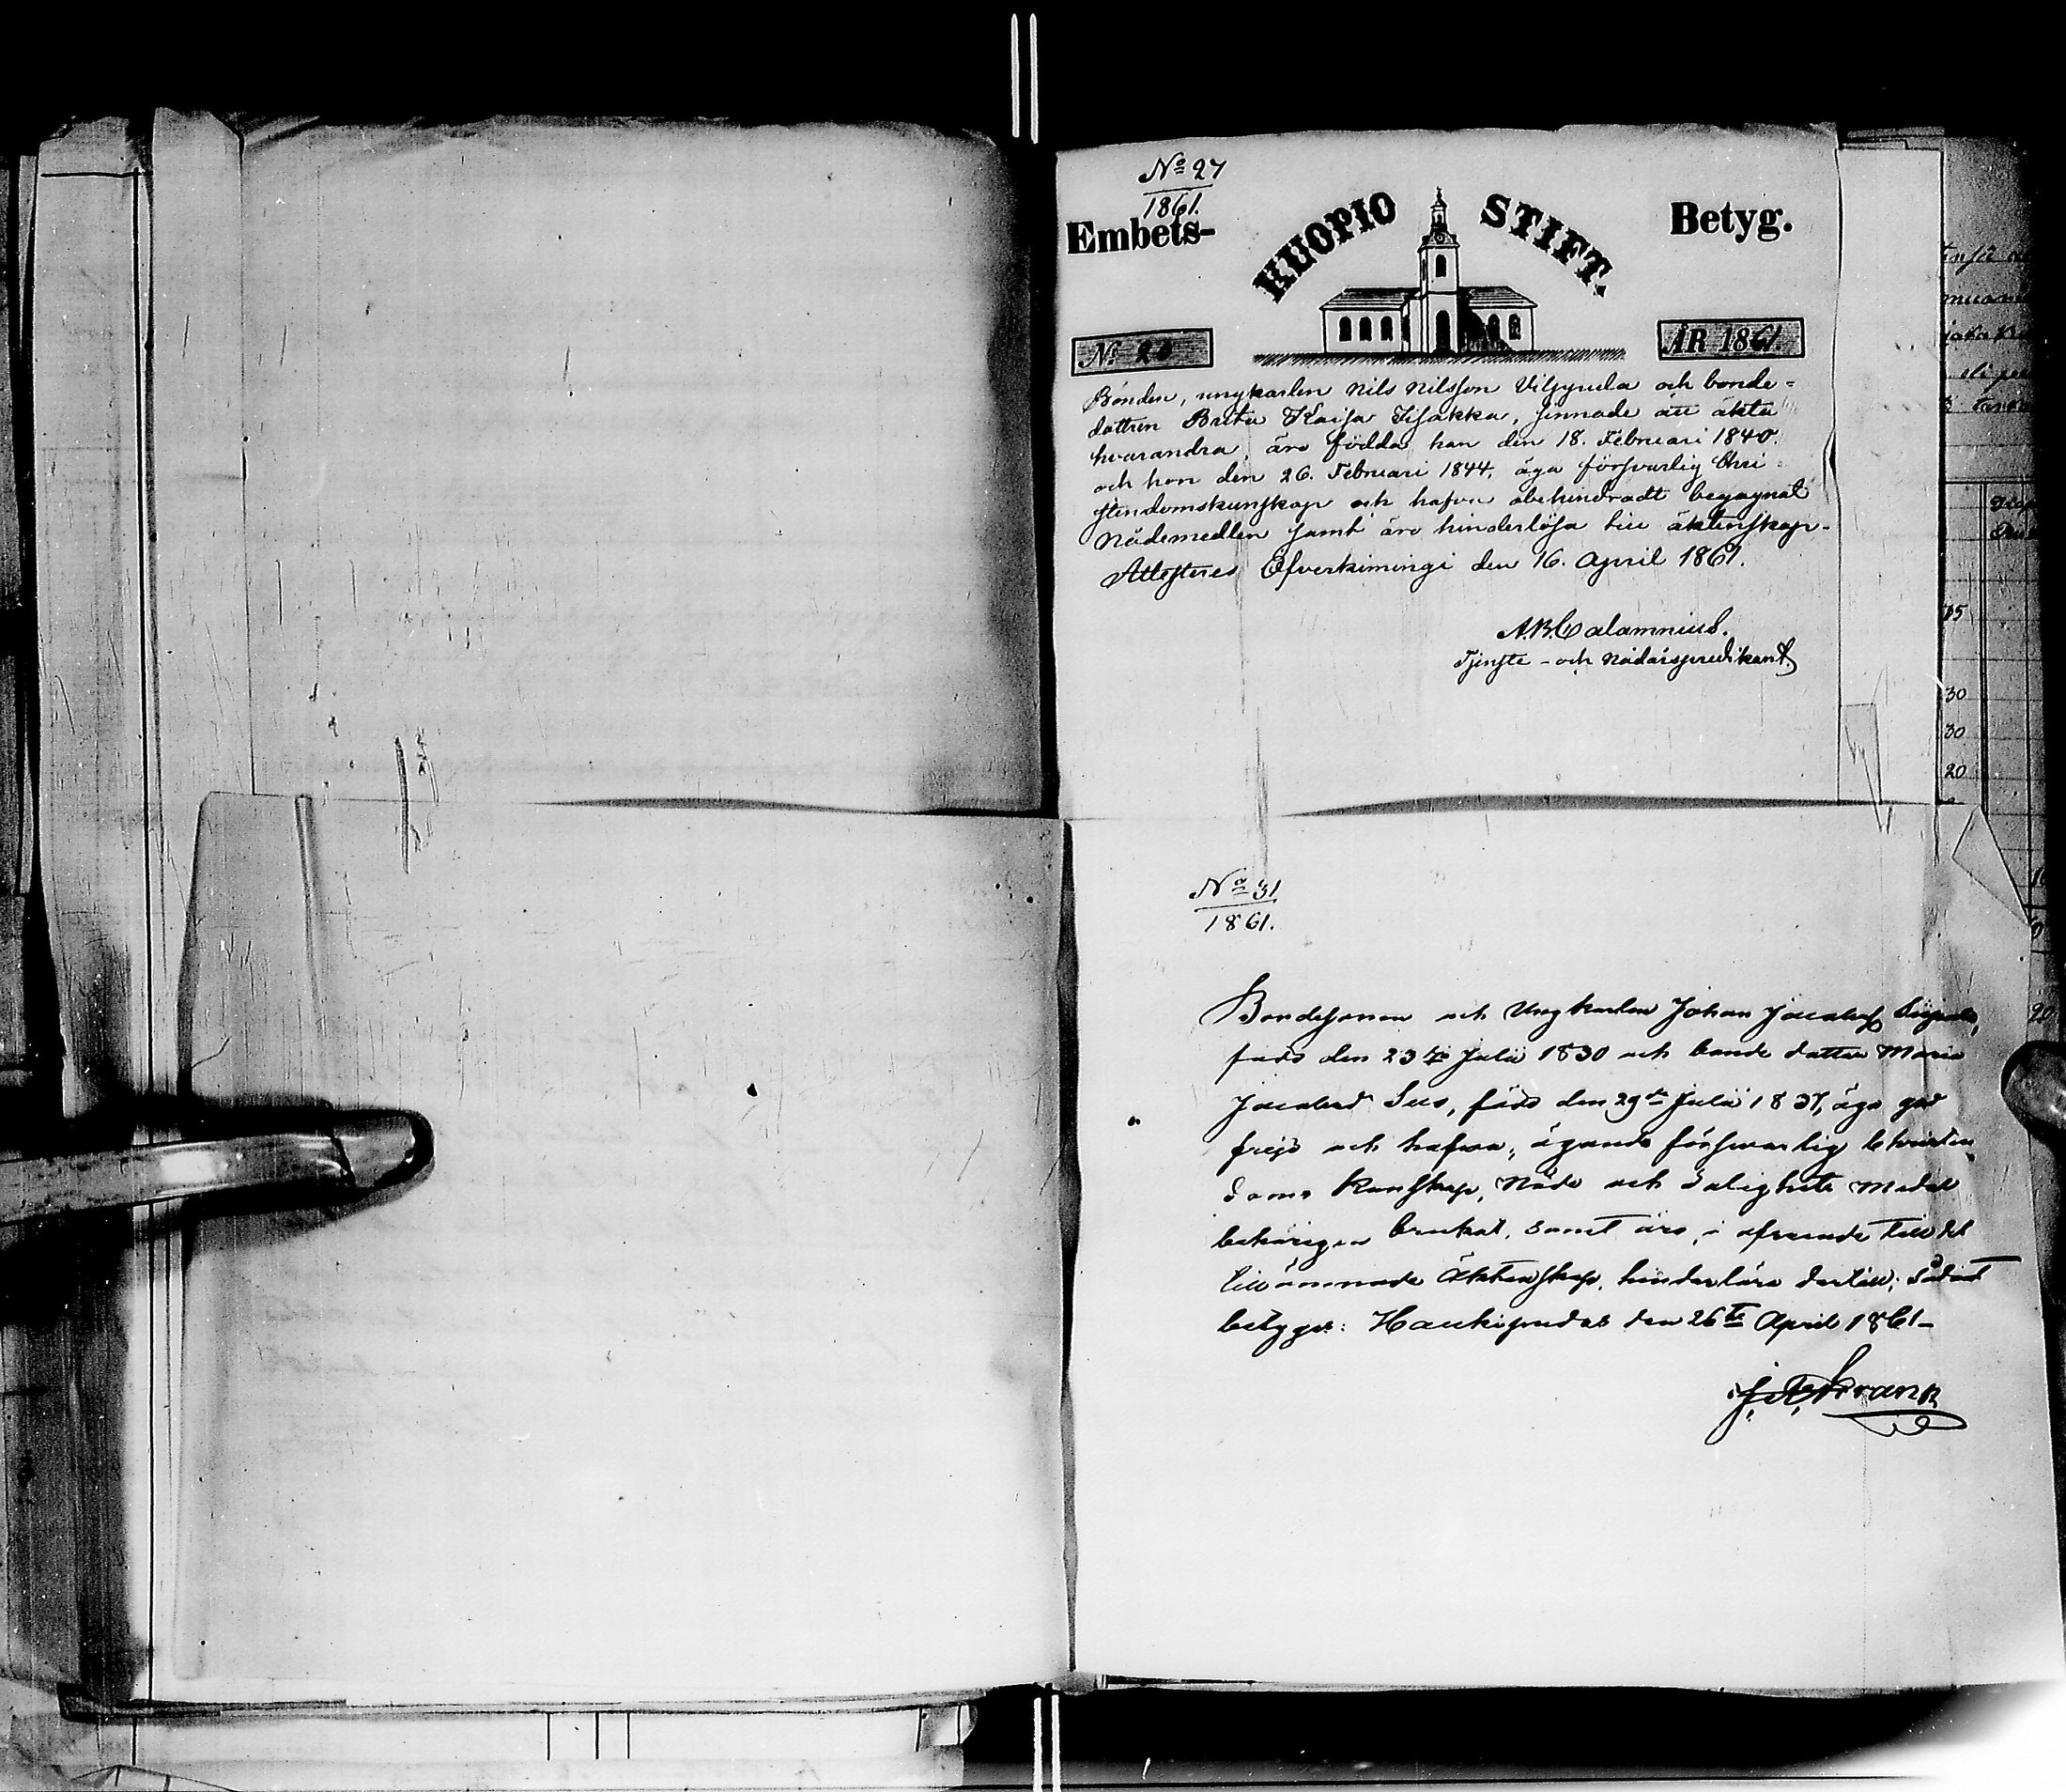 No 27
1861.
Embets-
KUOPIO STIFT.
Betyg.
No 20
ÅR 1861
Bonden, ungkarlen Nils Nilsson och bonde-
dottren Brita Kaisa ämnade att äkta
hvarandra, äro födda han den 18. Februari 1840.
och hon den 26. Februari 1844, äga försvarlig Chri-
stendomskunskap och hafva obehindradt begagnat
Nådemedlen samt äro hinderlösa till äktenskap.
Attesteras Öfverkiimingi den 16. April 1861.
A.B. Calamnius.
Tjenste- och Nådårspredikant.
No 31
1861.
Bondesonen och Ungkarlen Johan Jacobss.
född den 23 Julii 1830 och bonde dottren Maria
Jacobsd. född den 29de Julii 1837, äga god
frejd och hafva, ägande försvarlig Christen
doms kunskap, Nåde och Salighets medel
behörigen brukat, samt äro, i afseende till det
tillämnade Äktenskap, hinderlösa dertill; Sådant
betygas: Haukipudas den 26te April 1861-